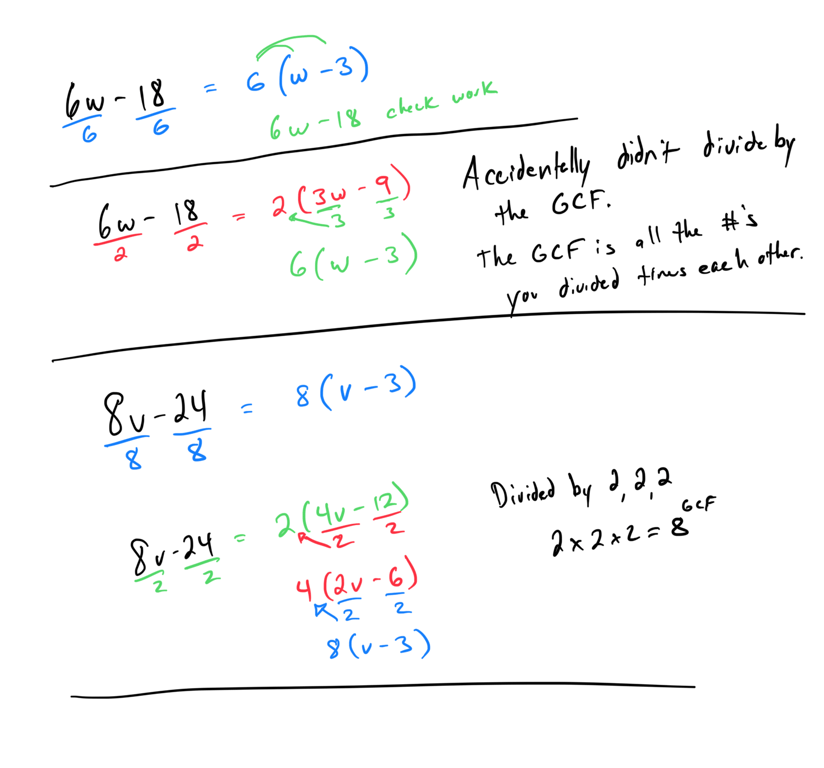 6w - 18 = 6(w - 3)
6 6
6w - 18 check work
6w - 18 = 2(3w - 9)
2 2 3 3
6(w - 3)
Accidentelly didn't divide by
the GCF.
The GCF is all the #'s
you divided times each other.
8v - 24 = 8(v - 3)
8 8
8v - 24 = 2(4v - 12)
2 2 2 2
4(2v - 6)
2 2
8(v - 3)
Divided by 2, 2, 2
2 x 2 x 2 = 8 GCF